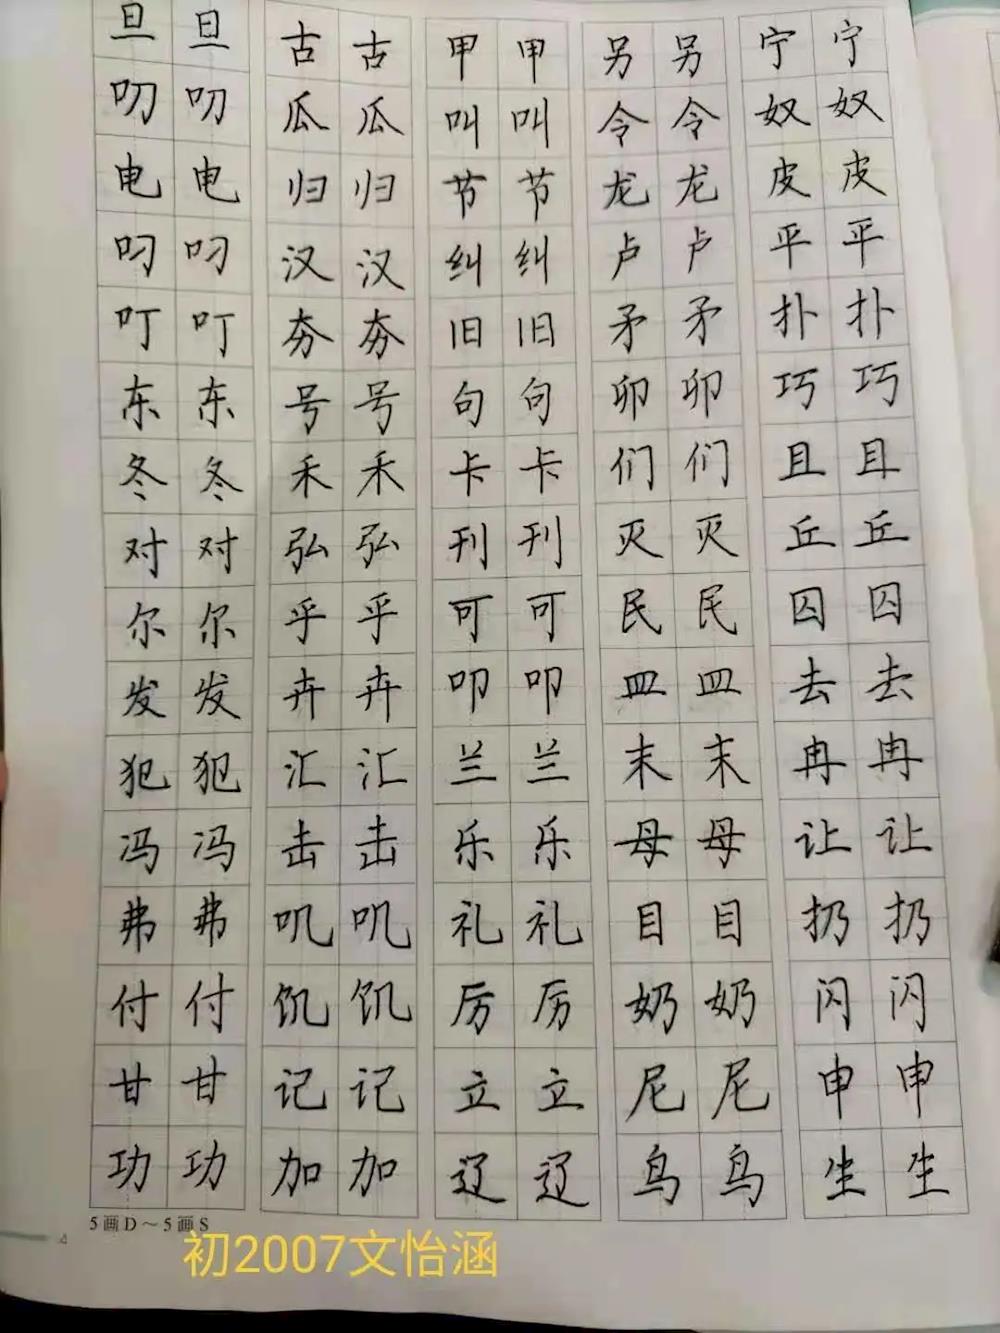 旦 旦 古 古 甲 甲 另 另 宁 宁
叨 叨 瓜 瓜 叫 叫 令 令 奴 奴
电 电 归 归 节 节 龙 龙 皮 皮
叼 叼 汉 汉 纠 纠 卢 卢 平 平
叮 叮 夯 夯 旧 旧 矛 矛 扑 扑
东 东 号 号 句 句 卯 卯 巧 巧
冬 冬 禾 禾 卡 卡 们 们 且 且
对 对 弘 弘 刊 刊 灭 灭 丘 丘
尔 尔 乎 乎 可 可 民 民 囚 囚
发 发 卉 卉 叩 叩 皿 皿 去 去
犯 犯 汇 汇 兰 兰 末 末 冉 冉
冯 冯 击 击 乐 乐 母 母 让 让
弗 弗 叽 叽 礼 礼 目 目 扔 扔
付 付 饥 饥 厉 厉 奶 奶 闪 闪
甘 甘 记 记 立 立 尼 尼 申 申
功 功 加 加 辽 辽 鸟 鸟 生 生
5画D～5画S
4
初2007文怡涵